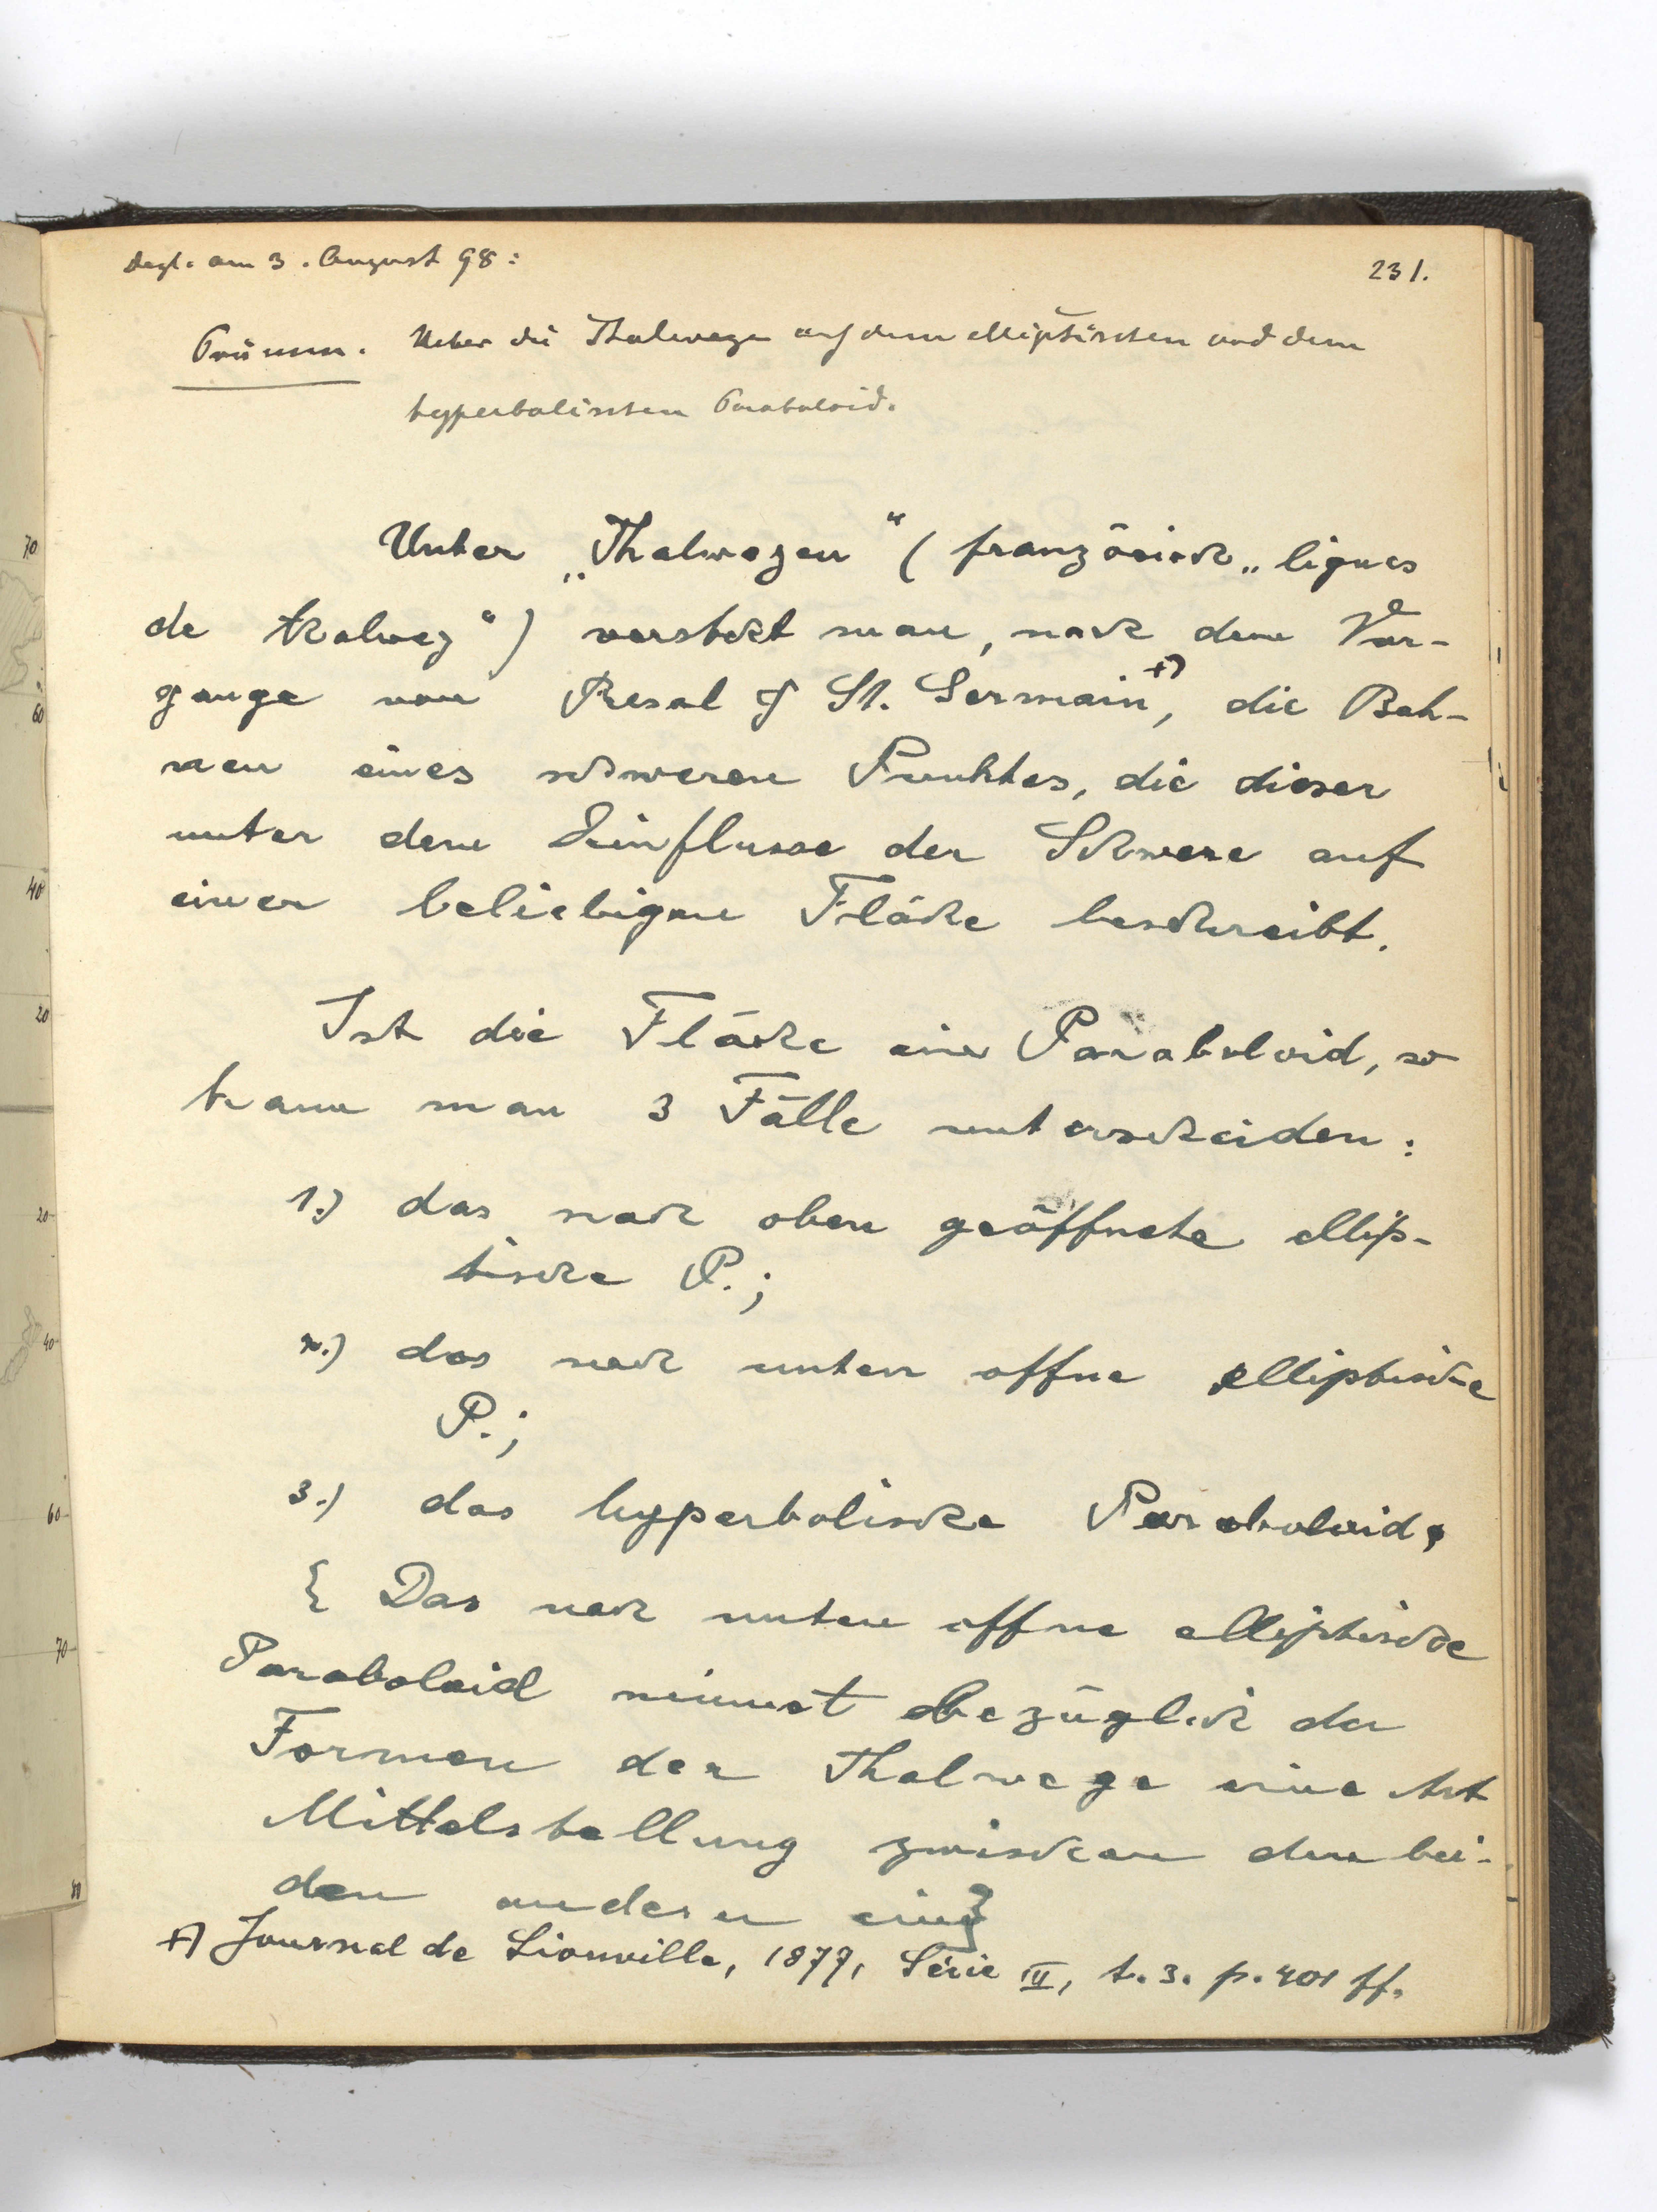 Degl. am 3. August 98:
231.
Prümm. Ueber die Thalwege auf dem elliptischen und dem
hyperbolischen Paraboloid.
Unter „Thalwegen“ (französisch „lignes
de thalweg“) versteht man, nach dem Vor-
gange von Resal & St. Germain +), die Bah-
nen eines schweren Punktes, die dieser
unter dem Einflusse der Schwere auf
einer beliebigen Fläche beschreibt.
Ist die Fläche ein Paraboloid, so
kann man 3 Fälle unterscheiden:
1.) das nach oben geöffnete ellip-
tische P.;
2.) das nach unten offne elliptische
P.;
3.) das hyperbolische Paraboloid.
{ Das nach unten offne elliptische
Paraboloid nimmt bezüglich der
Formen der Thalwege eine Art
Mittelstellung zwischen den bei-
den andern ein}
+) Journal de Liouville, 1877, Série III, t. 3. p. 401 ff.
70
60
40
20
20
40
60
70
80